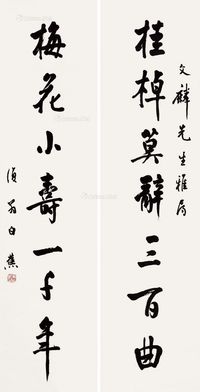 文麟先生雅属
桂棹莫辞三百曲
梅花小壽一千年
白蕉